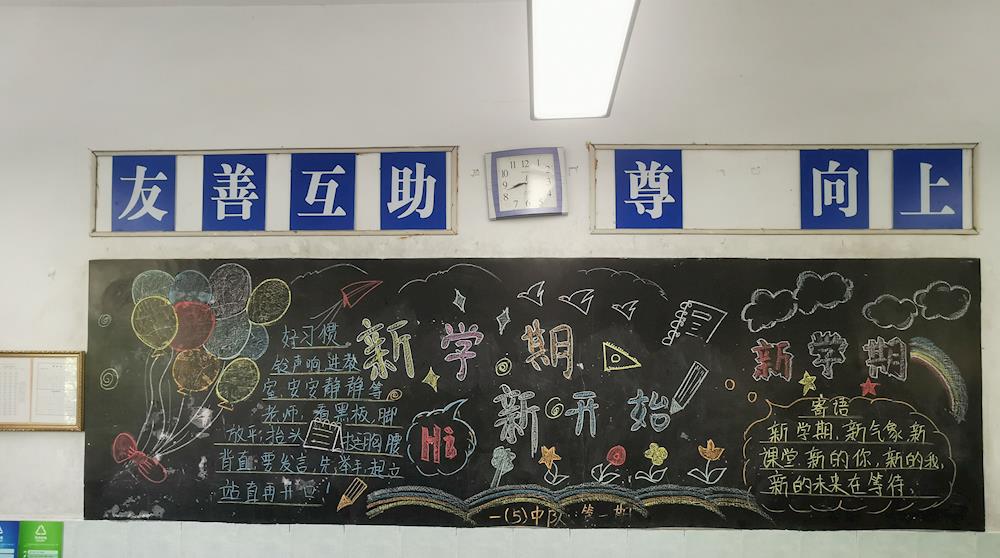 友善互助
尊 向上
11 12 1
10 2
9 3
8 4
7 6 5
好习惯
铃声响,进教
室,安安静静等
老师;看黑板,脚
放平;抬头 挺胸腰
背直;要发言,先举手,起立
站直再开口!
新学期
新开始
Hi
一(5)中队 第一期
新学期
寄语
新学期,新气象,新
课堂,新的你,新的我,
新的未来在等待。